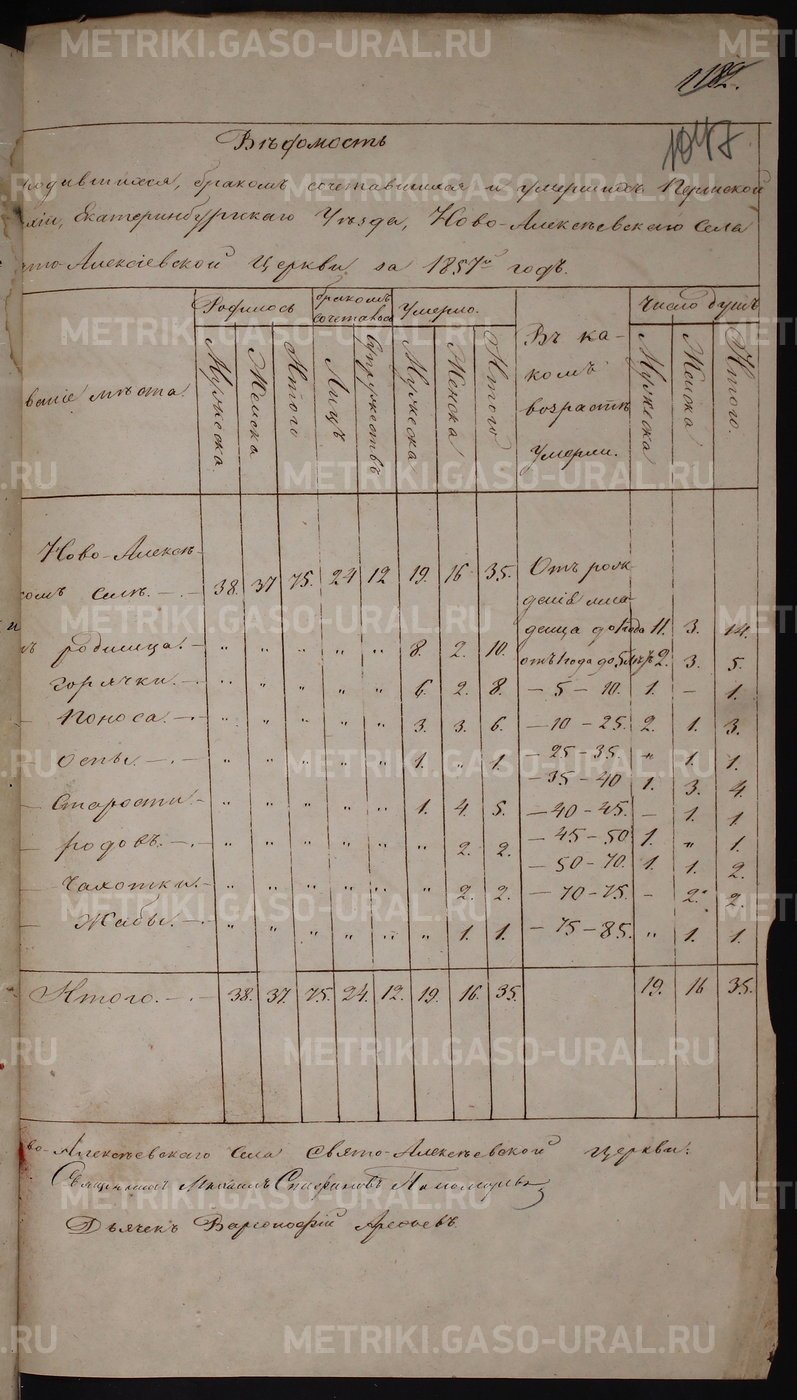 METRIKI.GASO-URAL.RU
1182.
1047
Вѣдомость
родившихся, бракомъ сочетавшихся и умершихъ Пермской
Екатеринбургскаго Уѣзда, Ново-Алексѣевскаго Села
Алексіевской Церкви за 1857й годъ.
Родилось бракомъ сочеталось Умерло. Въ какомъ возрастѣ Умерли. Число душъ
вание мѣста. Мужеска Женска Итого Лицъ Супружествъ Мужеска Женска Итого Мужеска Женска Итого.
Ново-Алексѣ-
комъ селѣ. 38. 37 75. 24 12 19. 16. 35. Отъ рож-
денія мла-
денца до 1 года 11. 3. 14.
родимца. " " " " " 8. 2. 10. отъ 1 года до 5 лѣтъ 2. 3. 5.
горячки. " " " " " 6. 2. 8. – 5 – 10. 1. – 1.
Поноса. " " " " " 3. 3. 6. – 10 – 25. 2. 1. 3.
Оспы. " " " " " 1. " 1. – 25 – 35. " 1. 1.
– 35 – 40 1. 3. 4.
Старости. " " " " " 1. 4. 5. – 40 – 45. – 1. 1
родовъ. " " " " " " 2. 2. – 45 – 50 1. " 1.
– 50 – 70. 1. 1. 2.
Чахотки. " " " " " " 2. 2. – 70 – 75. – 2. 2.
Жабы. " " " " " " 1. 1. – 75 – 85. " 1. 1.
Итого. 38. 37. 75. 24. 12. 19. 16. 35. 19. 16 35.
во-Алексѣевскаго Села Свято-Алексѣевской Церкви:
Священникъ Михаилъ Пономаревъ
Дьячекъ Варсонофій Арефьевъ